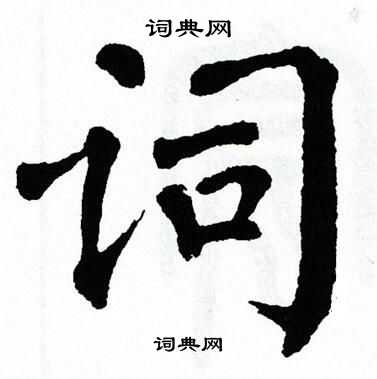 词典网
词
词典网